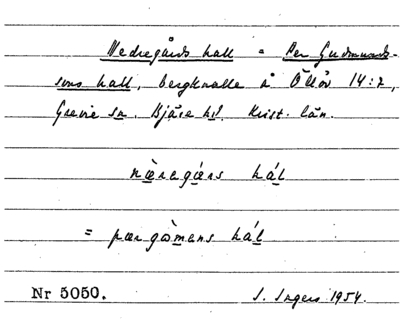 Nedregårds hall = Per Gudmunds-
sons hall, bergknalle å Öllöv 14:2,
Grevie sn. Bjäre hd. Krist. län.
næregǻrs hál
= pær gòmans hál
Nr 5050. S. Ingers 1954.